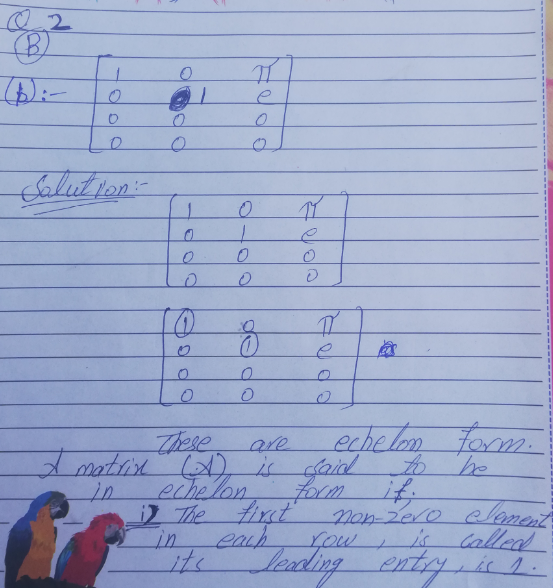 Q 2
(B)
(b):-
1 0 π
0 1 e
0 0 0
0 0 0
Solution:-
1 0 π
0 1 e
0 0 0
0 0 0
1 0 π
0 1 e
0 0 0
0 0 0
These are echelon form.
A matrix (A) is said to be
in echelon form if;
i) The first non-zero element
in each row, is called
its leading entry, is 1.